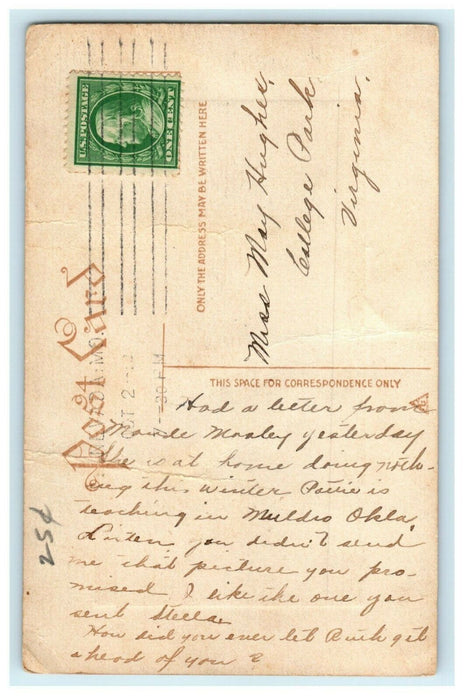 U.S. POSTAGE
ONE CENT
Post Card
ONLY THE ADDRESS MAY BE WRITTEN HERE
Miss May Hughes,
College Park
Virginia.
THIS SPACE FOR CORRESPONDENCE ONLY
Had a letter from
Maude Mosley yesterday
She is at home doing noth-
ing this winter is
teaching in Muldro Okla.
Listen you didn't send
me that picture you pro-
mised. I like the one you
sent Stella.
How did you ever let get
ahead of you?
25¢